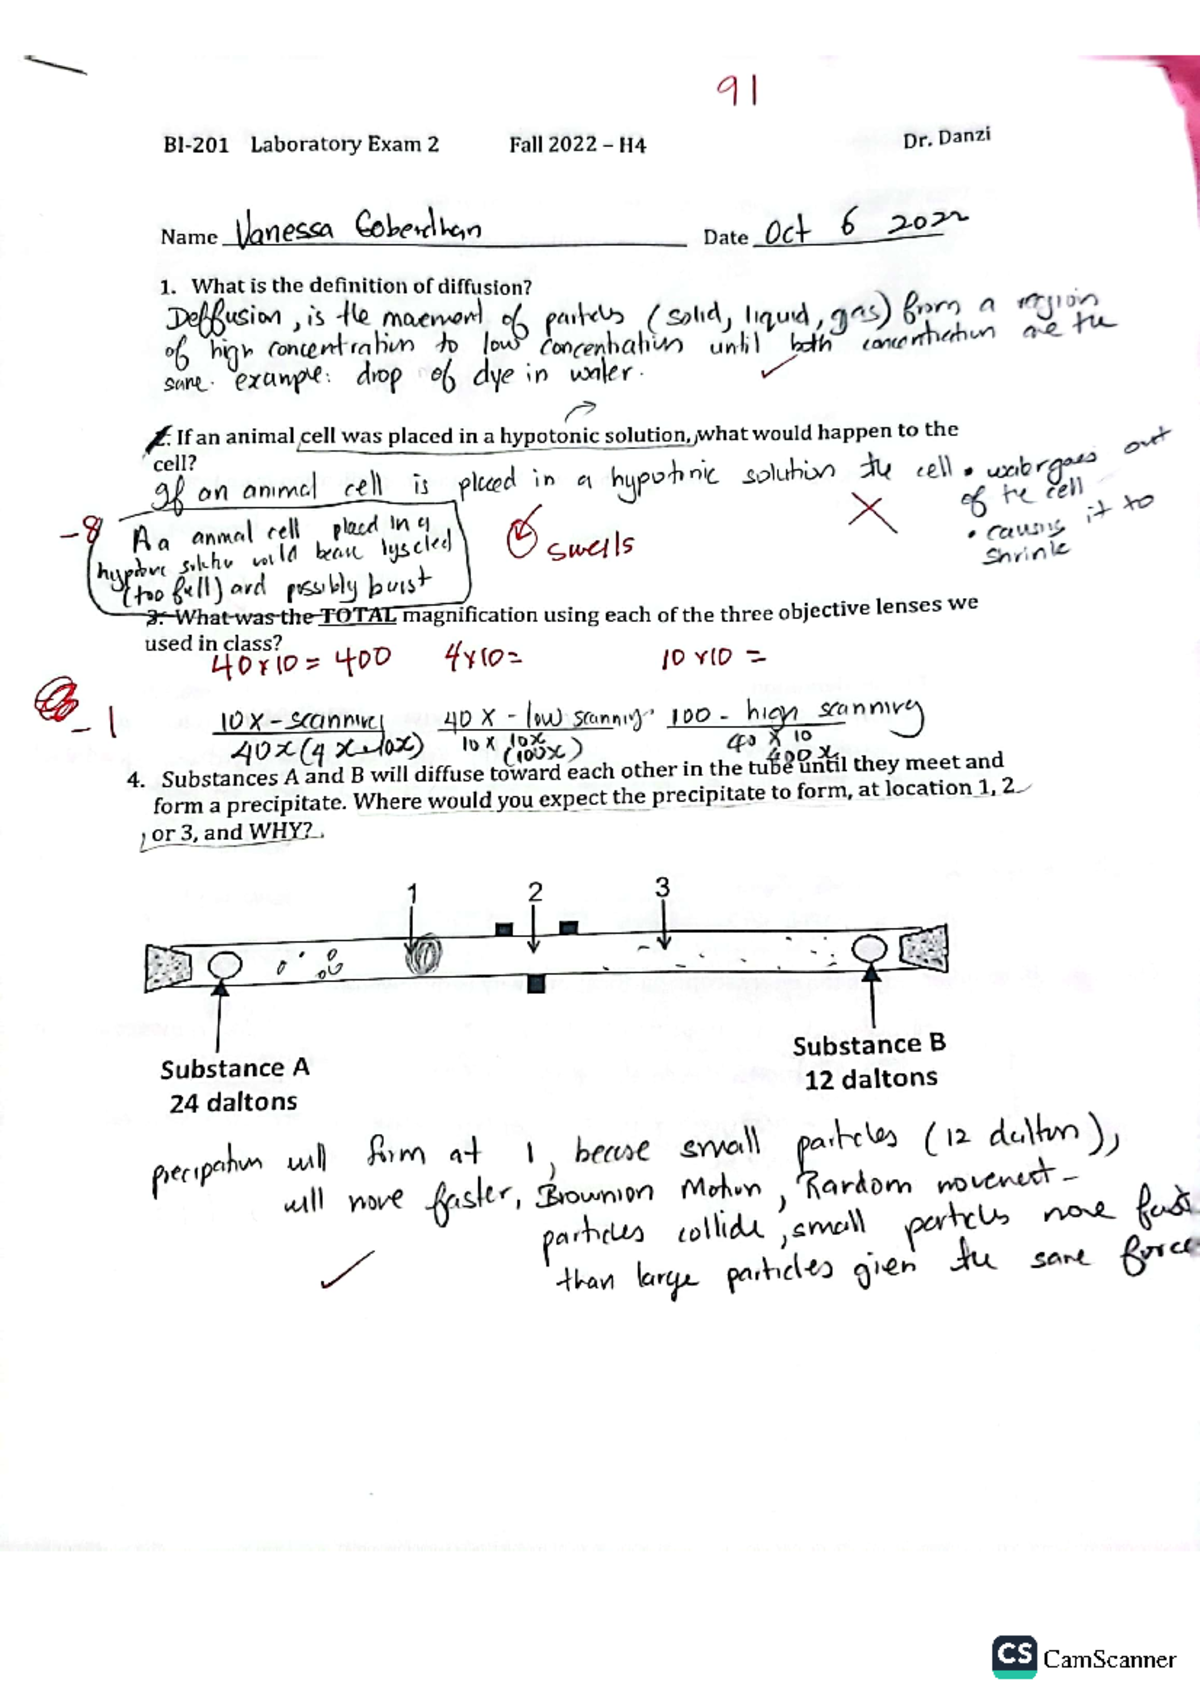 91
BI-201 Laboratory Exam 2 Fall 2022 – H4 Dr. Danzi
Name Vanessa Goberdhan Date Oct 6 2022
1. What is the definition of diffusion?
Deffusion, is the maement of particles (solid, liquid, gas) from a region
of high concentration to low concentration until both concentration are the
same. example: drop of dye in water.
2. If an animal cell was placed in a hypotonic solution, what would happen to the
cell?
If an animal cell is placed in a hypotonic solution the cell • water goes out
of the cell
• causing it to
shrink
-8
A a anmal cell placed in a
(too full) and possibly burst
swells
3. What was the TOTAL magnification using each of the three objective lenses we
used in class?
40x10= 400 4x10= 10x10 =
-1
10x-scanning 40x - low scanning. 100 - high scanning
40x(4x10x) 10x 10x 40 x 10
(100x) 400x
4. Substances A and B will diffuse toward each other in the tube until they meet and
form a precipitate. Where would you expect the precipitate to form, at location 1, 2
, or 3, and WHY?
1 2 3
Substance A
24 daltons
Substance B
12 daltons
precipation will form at 1, becase small particles (12 dalton),
will move faster, Brownion Motion, Random movement -
particles collide, small particles move fast
than large particles given the same force
CS CamScanner